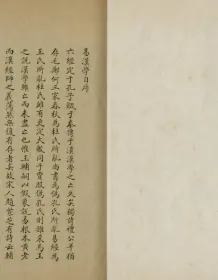 易漢學自序
六經定于孔子燬于秦傳于漢漢學之亡久矣獨詩禮公羊猶
存毛鄭何三家春秋為杜氏所亂尚書為偽孔氏所亂易經為
王氏所亂杜氏雖有更定大較同于賈服偽孔氏則雜采馬王
之說漢學雖亡而未盡亡也惟王輔嗣以假象說易根本黃老
而漢經師之義蕩然無復有存者矣故宋人趙紫芝有詩云輔